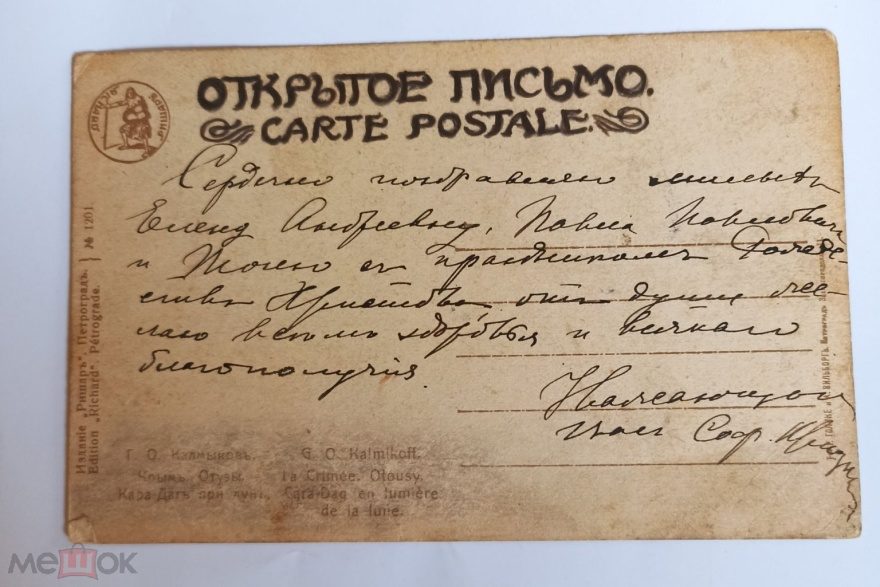 ОТКРЫТОЕ ПИСЬМО.
CARTE POSTALE.
Сердечно поздравляю милыхъ
Елену Андреевну, Павла Павловича
и Тосю съ праздникомъ Рожде-
ства Христова, отъ души же-
лаю всѣмъ здоровья и всякаго
благополучія
Уважающая
Соф.
Изданіе „Ришаръ“. Петроградъ.
Edition „Richard“. Pétrograde.
№ 1201.
Г. О. Калмыковъ.
Крымъ. Отузы.
Кара-Дагъ при лунѣ.
G. O. Kalmikoff.
La Crimée. Otousy.
Cara-Dag en lumière
de la lune.
мешок